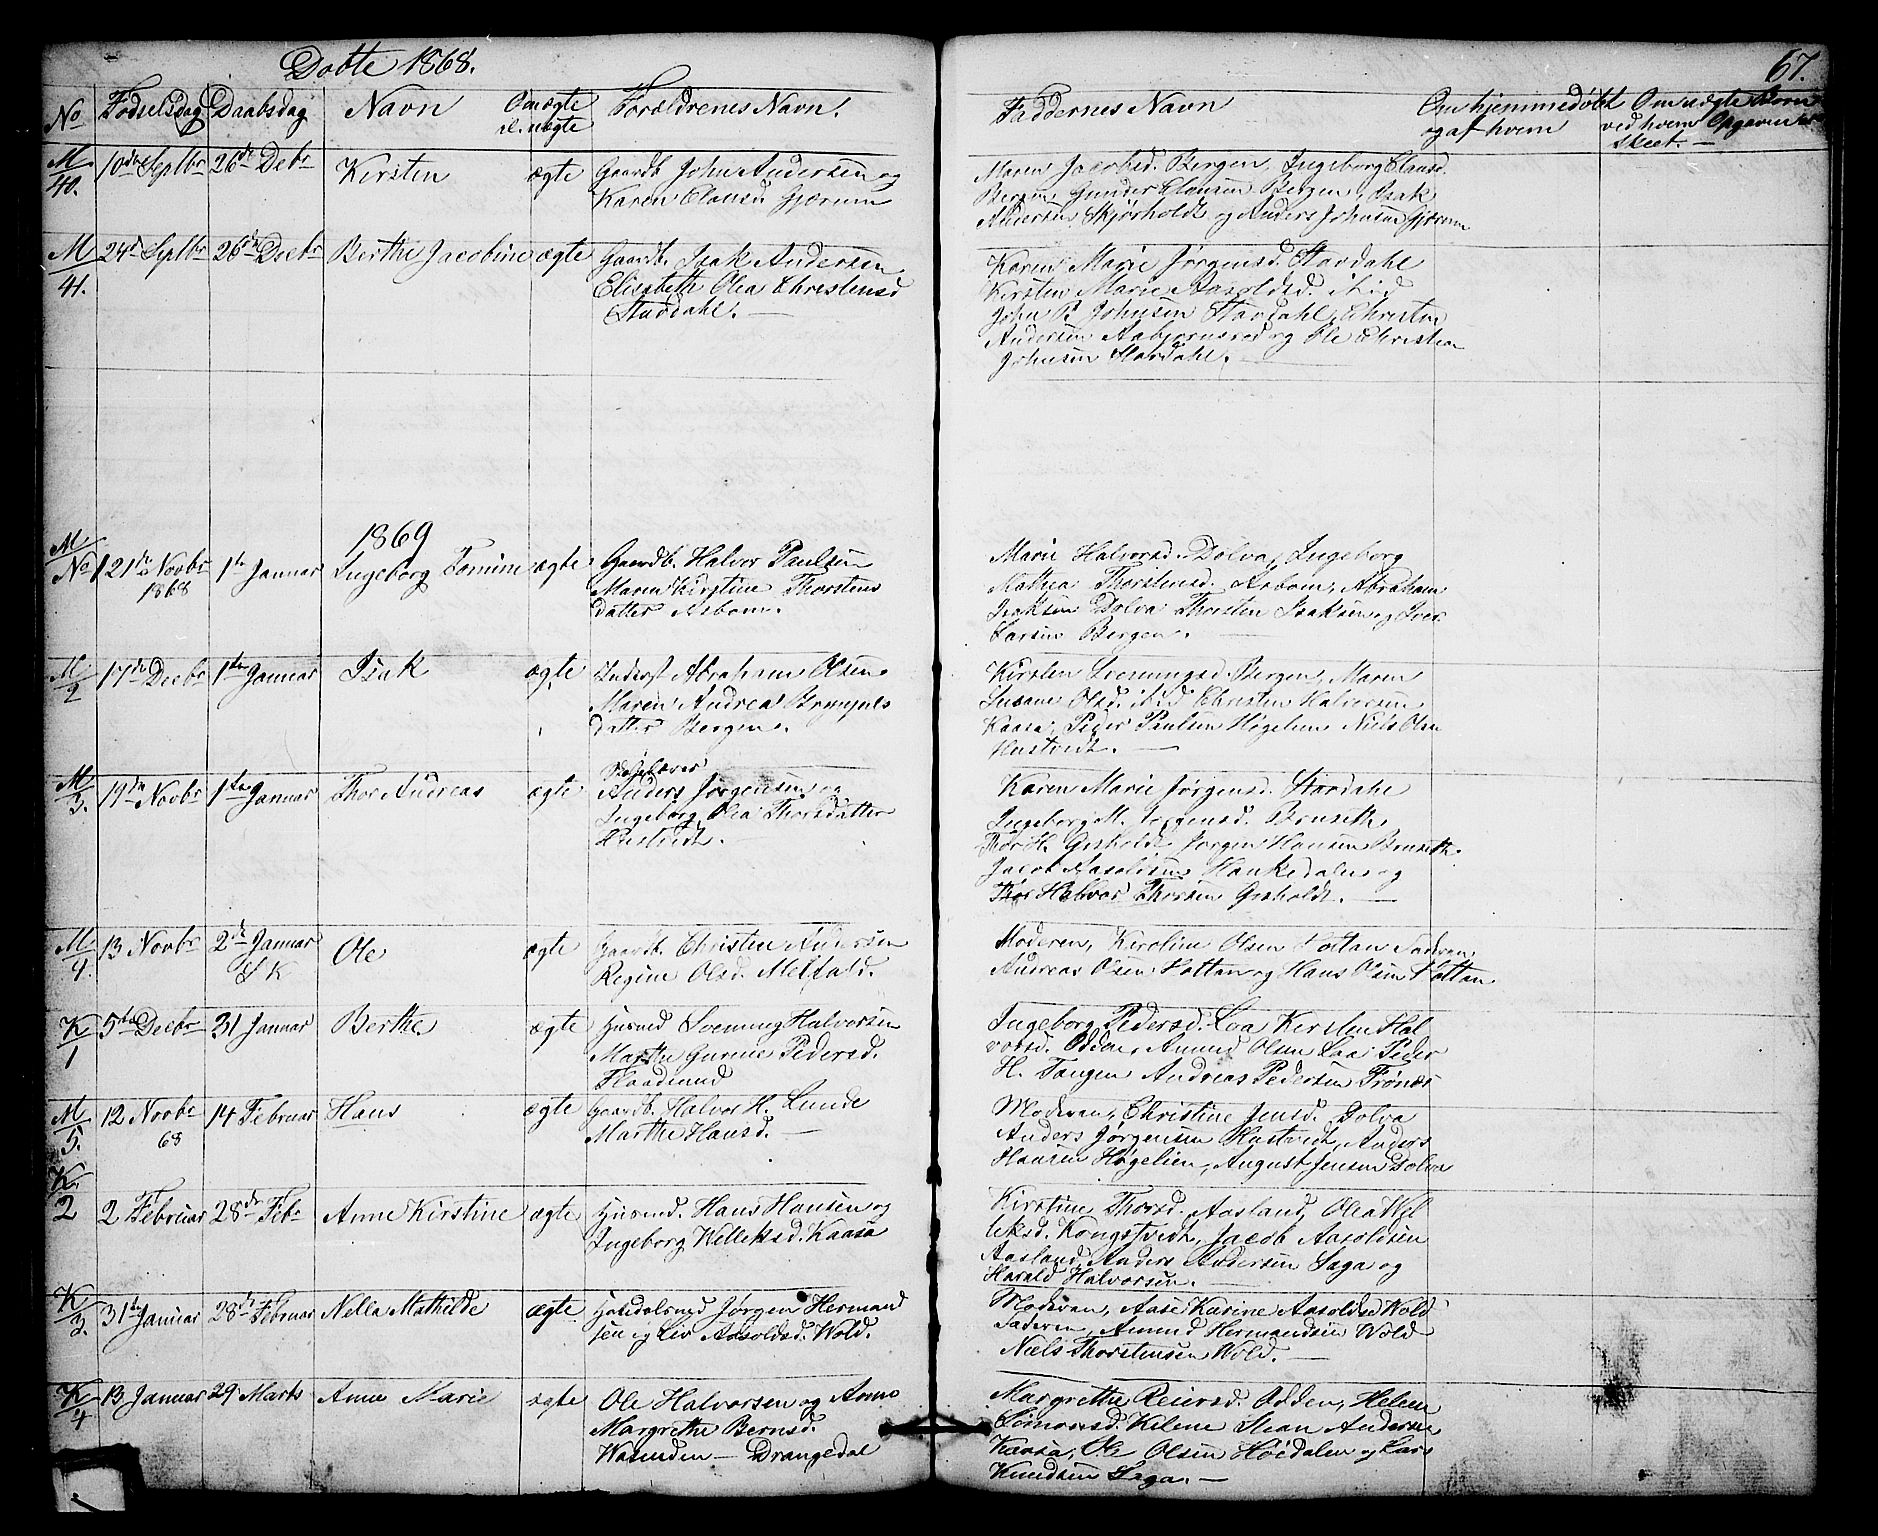 Døbte 1868.
67.
No Fødselsdag Daabsdag Navn Om ægte Forældrenes Navn. Faddernes Navn Om hjemmedøbt Om uægte Børn
el. uægte og af hvem ved hvem Opgaven er
skeet. —
M/40. 10de Septbr 26de Debr Kirsten ægte Gaardb. John Andersen og
Karen Clausd. Gjærum
Maren Jacobsd. Bergen, Ingeborg Clausd.
Bergen, Gunder Clausen Bergen, Isak
Andersen Skjørholdt og Anders Johnsen Gjærum
M/41. 24de Septbr 26de Decbr Berthe Jacobine ægte Gaardb. Isak Andersen
Elisabeth Olea Christensd
Stavdahl. —
Karen Marie Jørgensd. Stavdahl
Kirsten Marie Aasoldsd. ibid
John P. Johnsen Stavdahl, Christen
Andersen Aabjørnsrød og Ole Christian
Johnsen Stavdahl. —
1869
M/No 1 21de Novbr 1ste Januar Ingeborg Tomine ægte Gaardb. Halvor Paulsen
1868 Maren Kirstine Thorstens
datter Asbom.
Marie Halvorsd. Dolva, Ingeborg
Mathea Thorstensd. Asbom, Abraham
Isaksen Dolva Thorsten Isaksen og Iver
Larsen Bergen. —
M/2 17de Decbr 1ste Januar Isak ægte Inderst Abraham Olsen
Maren Andrea Brynjuls
datter Bergen.
Kirsten Svenungsd. Bergen, Maren
Susane Olsd. ibid Christen Halvorsen
Kaasa, Peder Paulsen Høgelien Niels Olsen
Hustvedt. —
M/3. 19de Novbr 1ste Januar Thor Andreas ægte
Anders Jørgensen og
Ingeborg Olea Thorsdatter
Hustvedt. —
Karen Marie Jørgensd. Stavdahl
Ingeborg M. Jørgensd. Bruseth,
Thor H. Grøholdt Jørgen Hansen Bruseth
Jacob Aasoldsen Haukedalen og
Halvor Thorsen Grøholdt. —
M/4. 13 Novbr 2de Januar Ole ægte Gaardb. Christen Andersen
S K Regine Olsd. Melfald.
Moderen, Karoline Olsen Hattan Faderen,
Andreas Olsen Hattan og Hans Olsen Hattan
K/1 5te Decbr 31 Januar Berthe ægte Husmd Svenung Halvorsen
Marthe Gurine Pedersd.
Flaadmund
Ingeborg Pedersd. Loa Kirsten Hal
vorsd. Odden, Amund Olsen Loa Peder
H. Tangen Andreas Pedersen Trønæs
M/5. 12 Novbr 14 Februar Hans ægte Gaardb. Halvor H. Lunde
68 Marthe Hansd. —
Moderen, Christine Jensd. Dolva
Anders Jørgensen Hustvedt, Anders
Hansen Høgelien, August Jensen Dolva
K/2 2 Februar 28de Febr Anne Kirstine ægte Husmd. Hans Hansen og
Ingeborg Welleksd. Kaasa
Kirstine Thorsd. Aasland, Olea Wel
leksd. Kongstvedt, Jacob Aasoldsen
Aasland, Anders Andersen Saga og
Harald Halvorsen. —
K/3. 31te Januar 28de Februar Nella Mathilde ægte Hatedalsmd Jørgen Hermand
sen og Liv Aasoldsd. Wold.
Moderen, Aase Karine Aasoldsd Wold
Faderen, Amund Hermandsen Wold
Niels Thorstensen Wold. —
K/4 13 Januar 29 Marts Anne Marie ægte Ole Halvorsen og Anne
Margrethe Bernsd.
Wasenden — Drangedal
Margrethe Reiersd. Odden, Helene
Simonsd. Kilene Stean Andersen
Kaasa, Ole Olsen Høidalen og Lars
Knudsen Saga. —